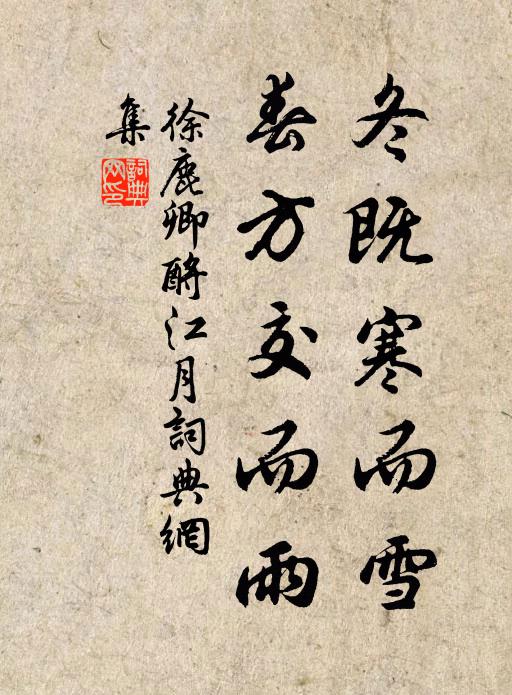 冬既寒而雪
春方交而雨
徐鹿卿酹江月詞典網
集
詞典
网印